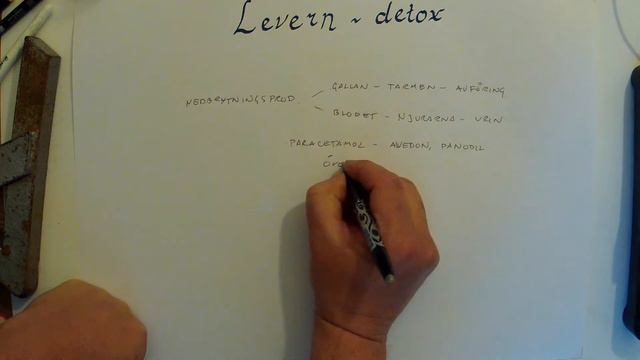 Levern ~ detox
GALLAN - TARMEN - AVFÖRING
NEDBRYTNINGSPROD.
BLODET - NJURARNA - URIN
PARACETAMOL - ALVEDON, PANODIL